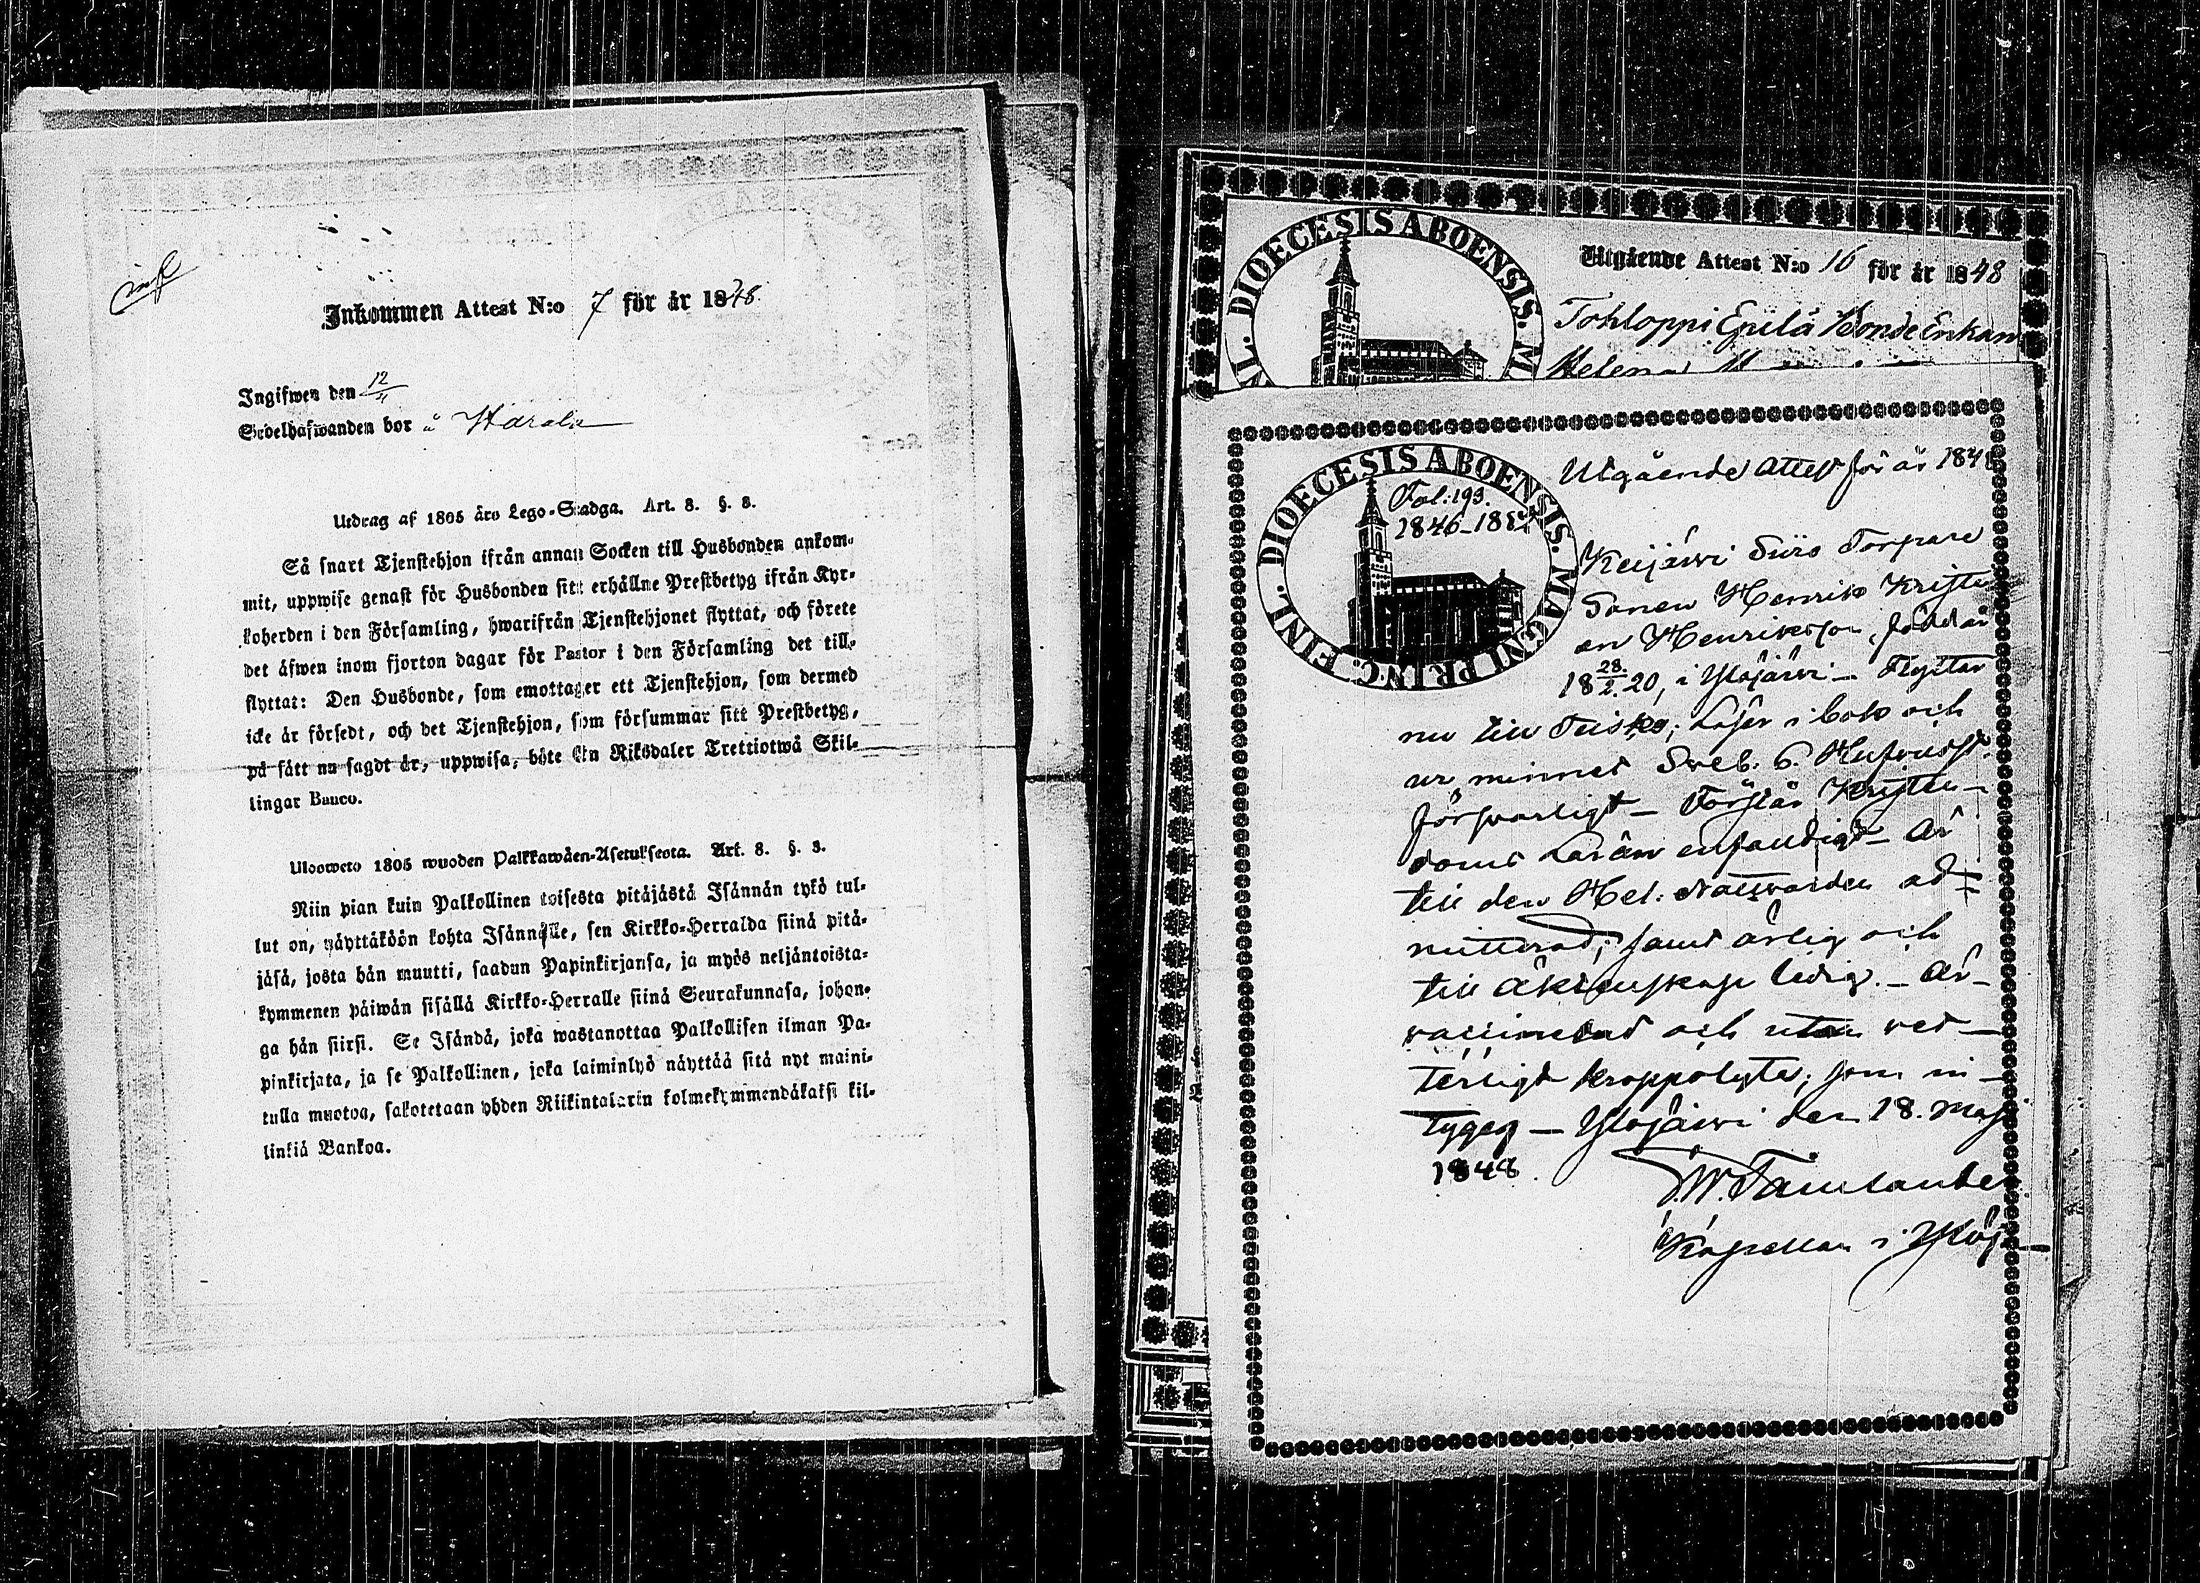 inf
Inkommen Attest N:o 7 för år 1848.
Ingifwen den 12/11
Sedelhafwanden bor å Harala
Utdrag af 1805 års Lego-Stadga. Art. 8. §. 3.
Så snart Tjenstehjon ifrån annan Socken till Husbonden ankom-
mit, uppwise genast för Husbonden sitt erhållne Prestbetyg ifrån Kyr-
koherden i den Församling, hwarifrån Tjenstehjonet flyttat, och förete
det äfwen inom fjorton dagar för Pastor i den Församling det till-
flyttat: Den Husbonde, som emottager ett Tjenstehjon, som dermed
icke är försedt, och det Tjenstehjon, som försummar sitt Prestbetyg,
på sätt nu sagdt är, uppwisa, böte En Riksdaler Trettiotwå Skil-
lingar Banco.
Uloosweto 1805 wuoden Palkkawäen-Asetuksesta. Art. 8. §. 3.
Niin pian kuin Palkollinen toisesta pitäjästä Isännän tykö tul-
lut on, näyttäköön kohta Isännälle, sen Kirkko-Herralda siinä pitä-
jäsä, josta hän muutti, saadun Papinkirjansa, ja myös neljäntoista-
kymmenen päiwän sisällä Kirkko-Herralle siinä Seurakunnasa, johon-
ga hän siirsi. Se Isändä, joka wastanottaa Palkollisen ilman Pa-
pinkirjata, ja se Palkollinen, joka laiminlyö näyttää sitä nyt maini-
tulla muotoa, sakotetaan yhden Riikintalarin kolmekymmendäkaksi kil-
linkiä Bankoa.
DIOECESIS ABOENSIS. M
NL.
Utgående Attest N:o 16 för år 1848
Tohloppi Epilä Bonde Enkan
Helena
DIOECESIS ABOENSIS. MAGNI PRINC. FINL.
Fol: 193.
1846-185
Utgående Attest för år 184
Keijärwi Siirs Torpare
Sonen Henrik Kristi
an Henriksson, född år
18 28/2. 20, i Ylöjärwi – Flyttar
nu till Teisko; Läser i bok och
ur minnet Sveb. o. Husfrudst.
försvarligt – Förstår Kristen-
doms Läran enfaldigt – Är
till den Hel. Nattvarden ad-
mitterad; samt ärlig och
till äktenskap ledig. – Är
vaccinerad och utan vet-
terligt kroppslyte; som in-
tygar – Ylöjärwi den 18. Maji
1848.
Kapellan i Ylöj